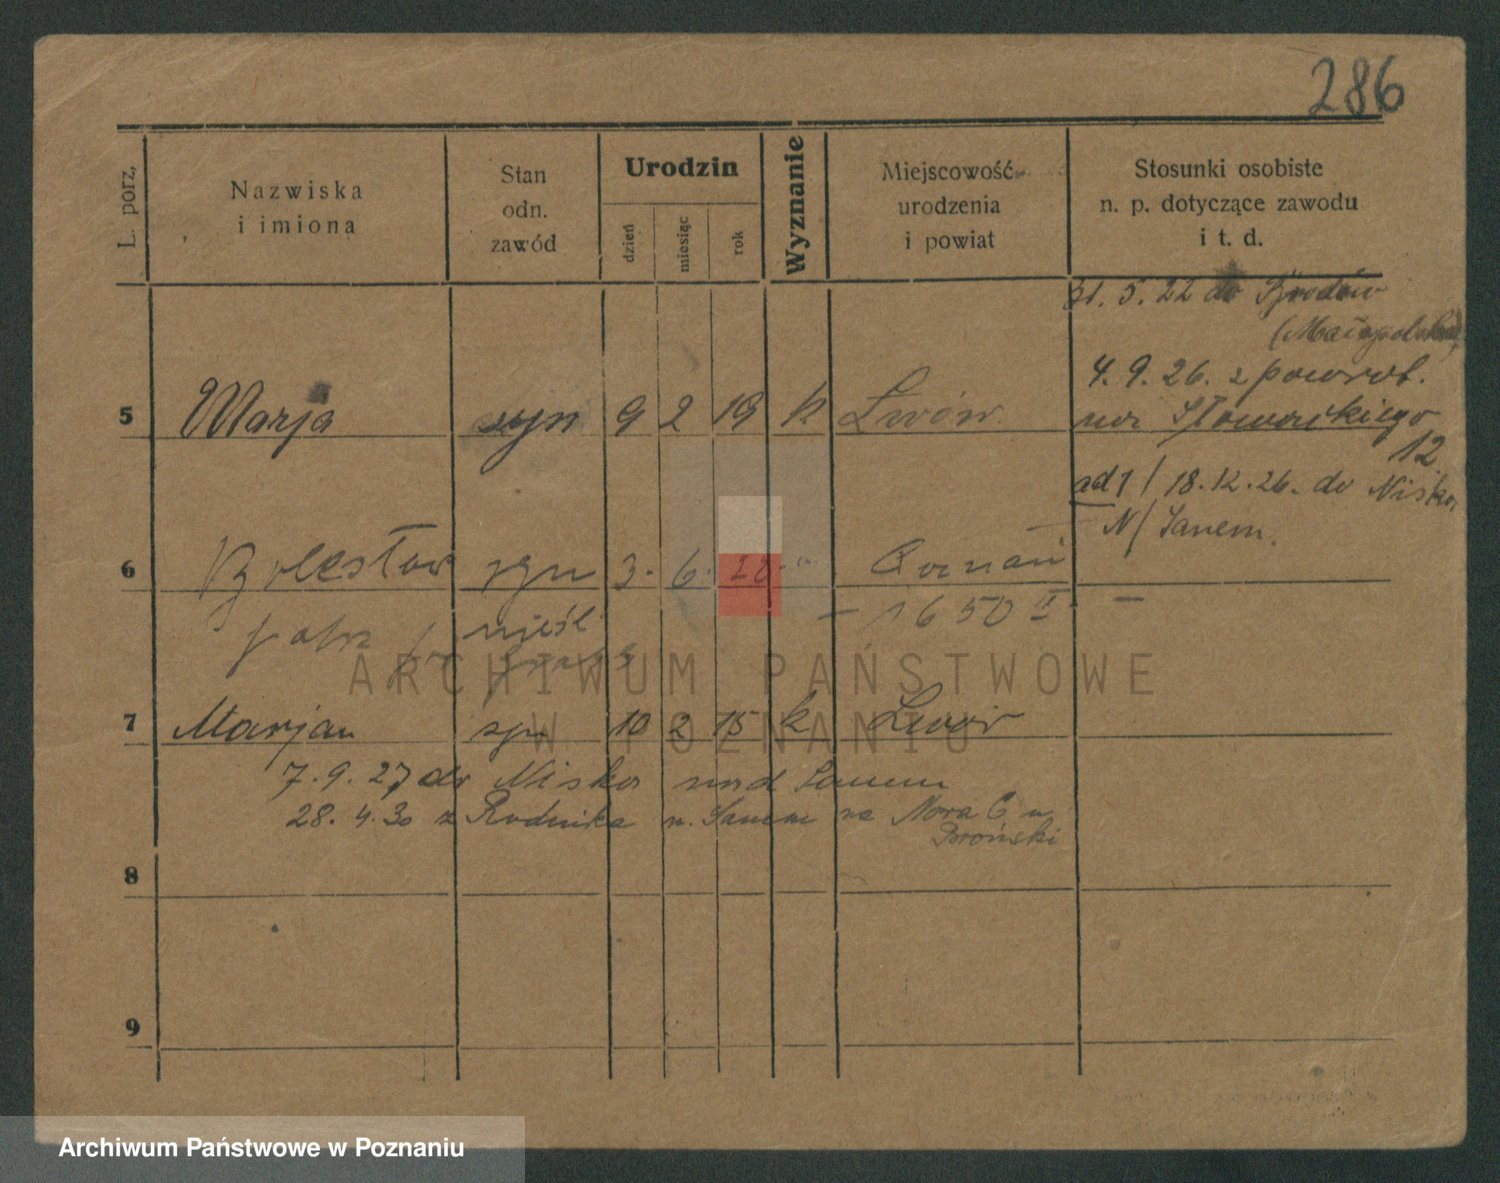 286
L. porz.
Nazwiska
i imiona
Stan
odn.
zawód
Urodzin
dzień
miesiąc
rok
Wyznanie
Miejscowość
urodzenia
i powiat
Stosunki osobiste
n. p. dotyczące zawodu
i t. d.
31. 5. 22 do Brodów
(Małopolska)
4. 9. 26. z powrot.
na Słowackiego
12
5 Marja syn 9 2 19 k Lwów.
ad 1 / 18.12.26. do Nisko
N/Sanem.
6 Bolesław syn 3. 6. Poznań
— 1650 II —
7 Marjan syn 10 2 15 k Lwów
7. 9. 27 do Nisko nad Sanem
28. 4. 30 z Rudnika n. Sanem na
Broński
8
9
ARCHIWUM PAŃSTWOWE
W POZNANIU
Archiwum Państwowe w Poznaniu